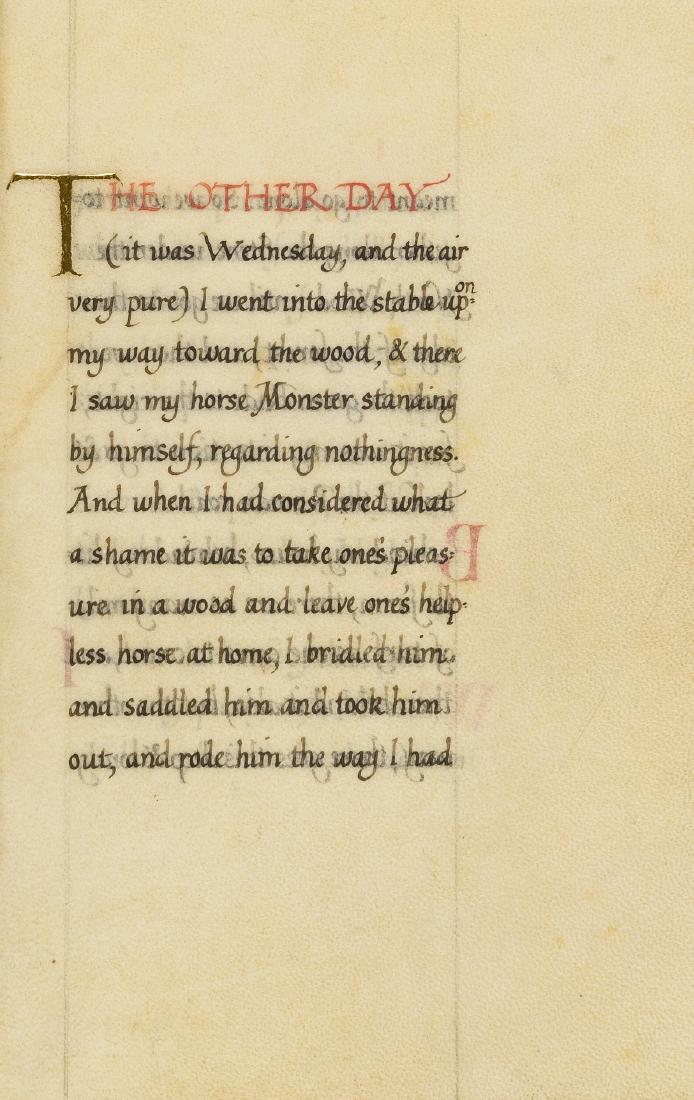 THE OTHER DAY
(it was Wednesday, and the air
very pure) I went into the stable up-on
my way toward the wood, & there
I saw my horse Monster standing
by himself, regarding nothingness.
And when I had considered what
a shame it was to take one's pleas-
ure in a wood and leave one's help-
less horse at home, I bridled him
and saddled him and took him
out, and rode him the way I had